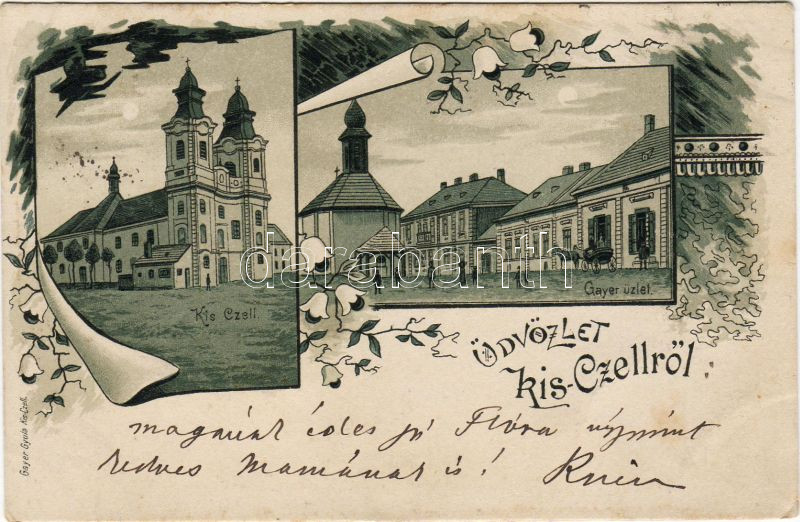 Kis Czell.
Gayer üzlet.
darabanth
ÜDVÖZLET
Kis-Czellről.
Gayer Gyula Kis-Czell.
magának édes jó Flóra úgymint
kedves Mamának is!